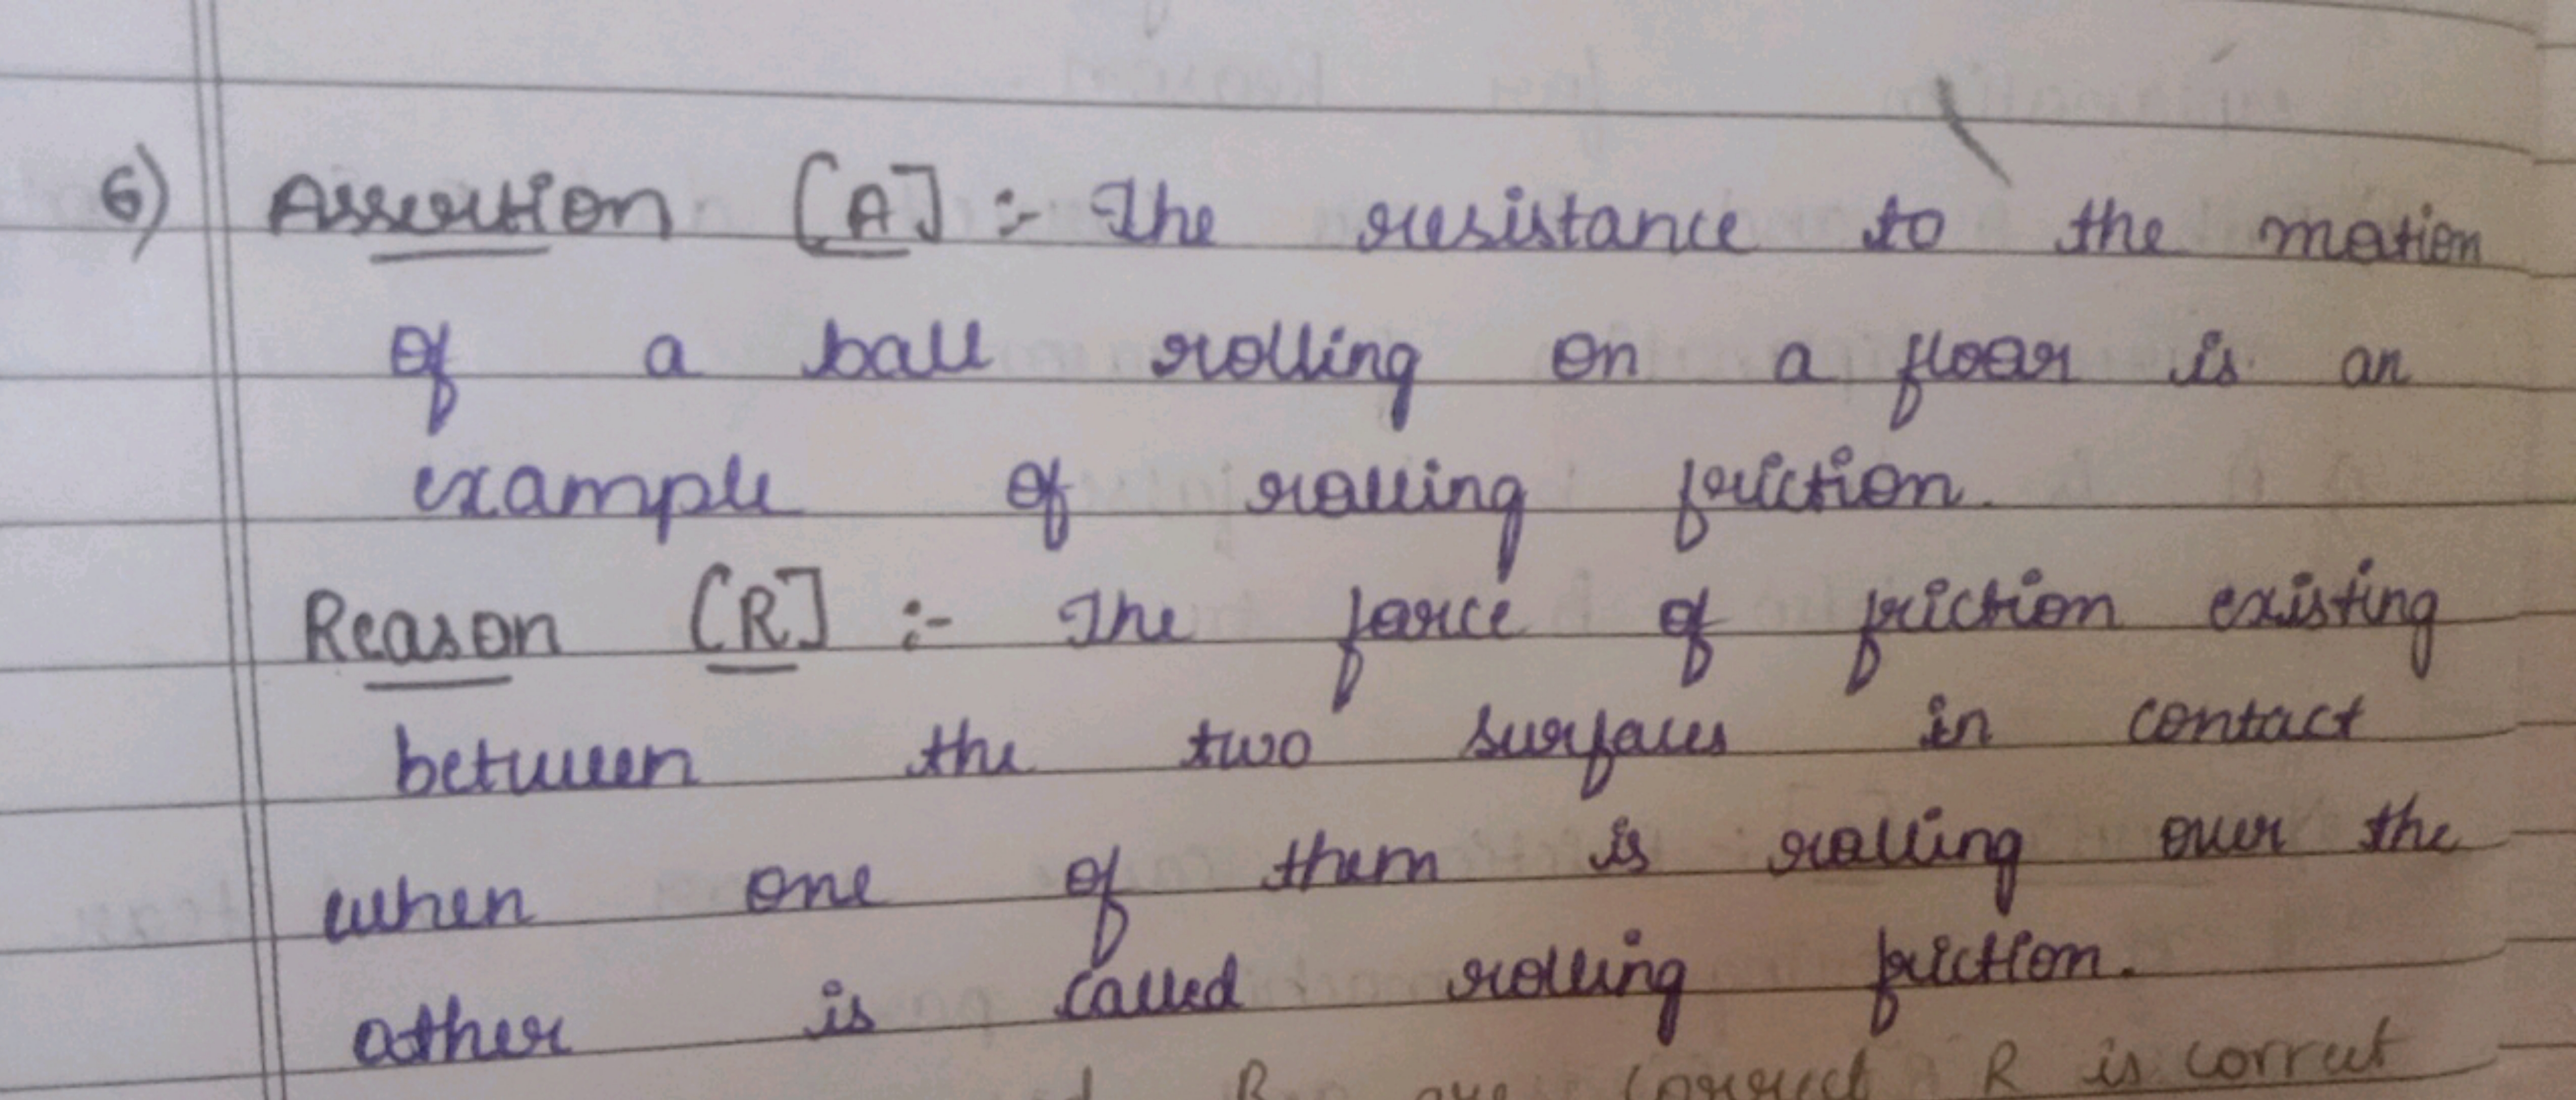 6) Assertion [A] :- The resistance to the motion
of a ball rolling on a floor is an
example of rolling friction.
Reason [R] :- The force of friction existing
between the two surfaces in contact
when one of them is rolling over the
other is called rolling friction.
R are correct R is correct